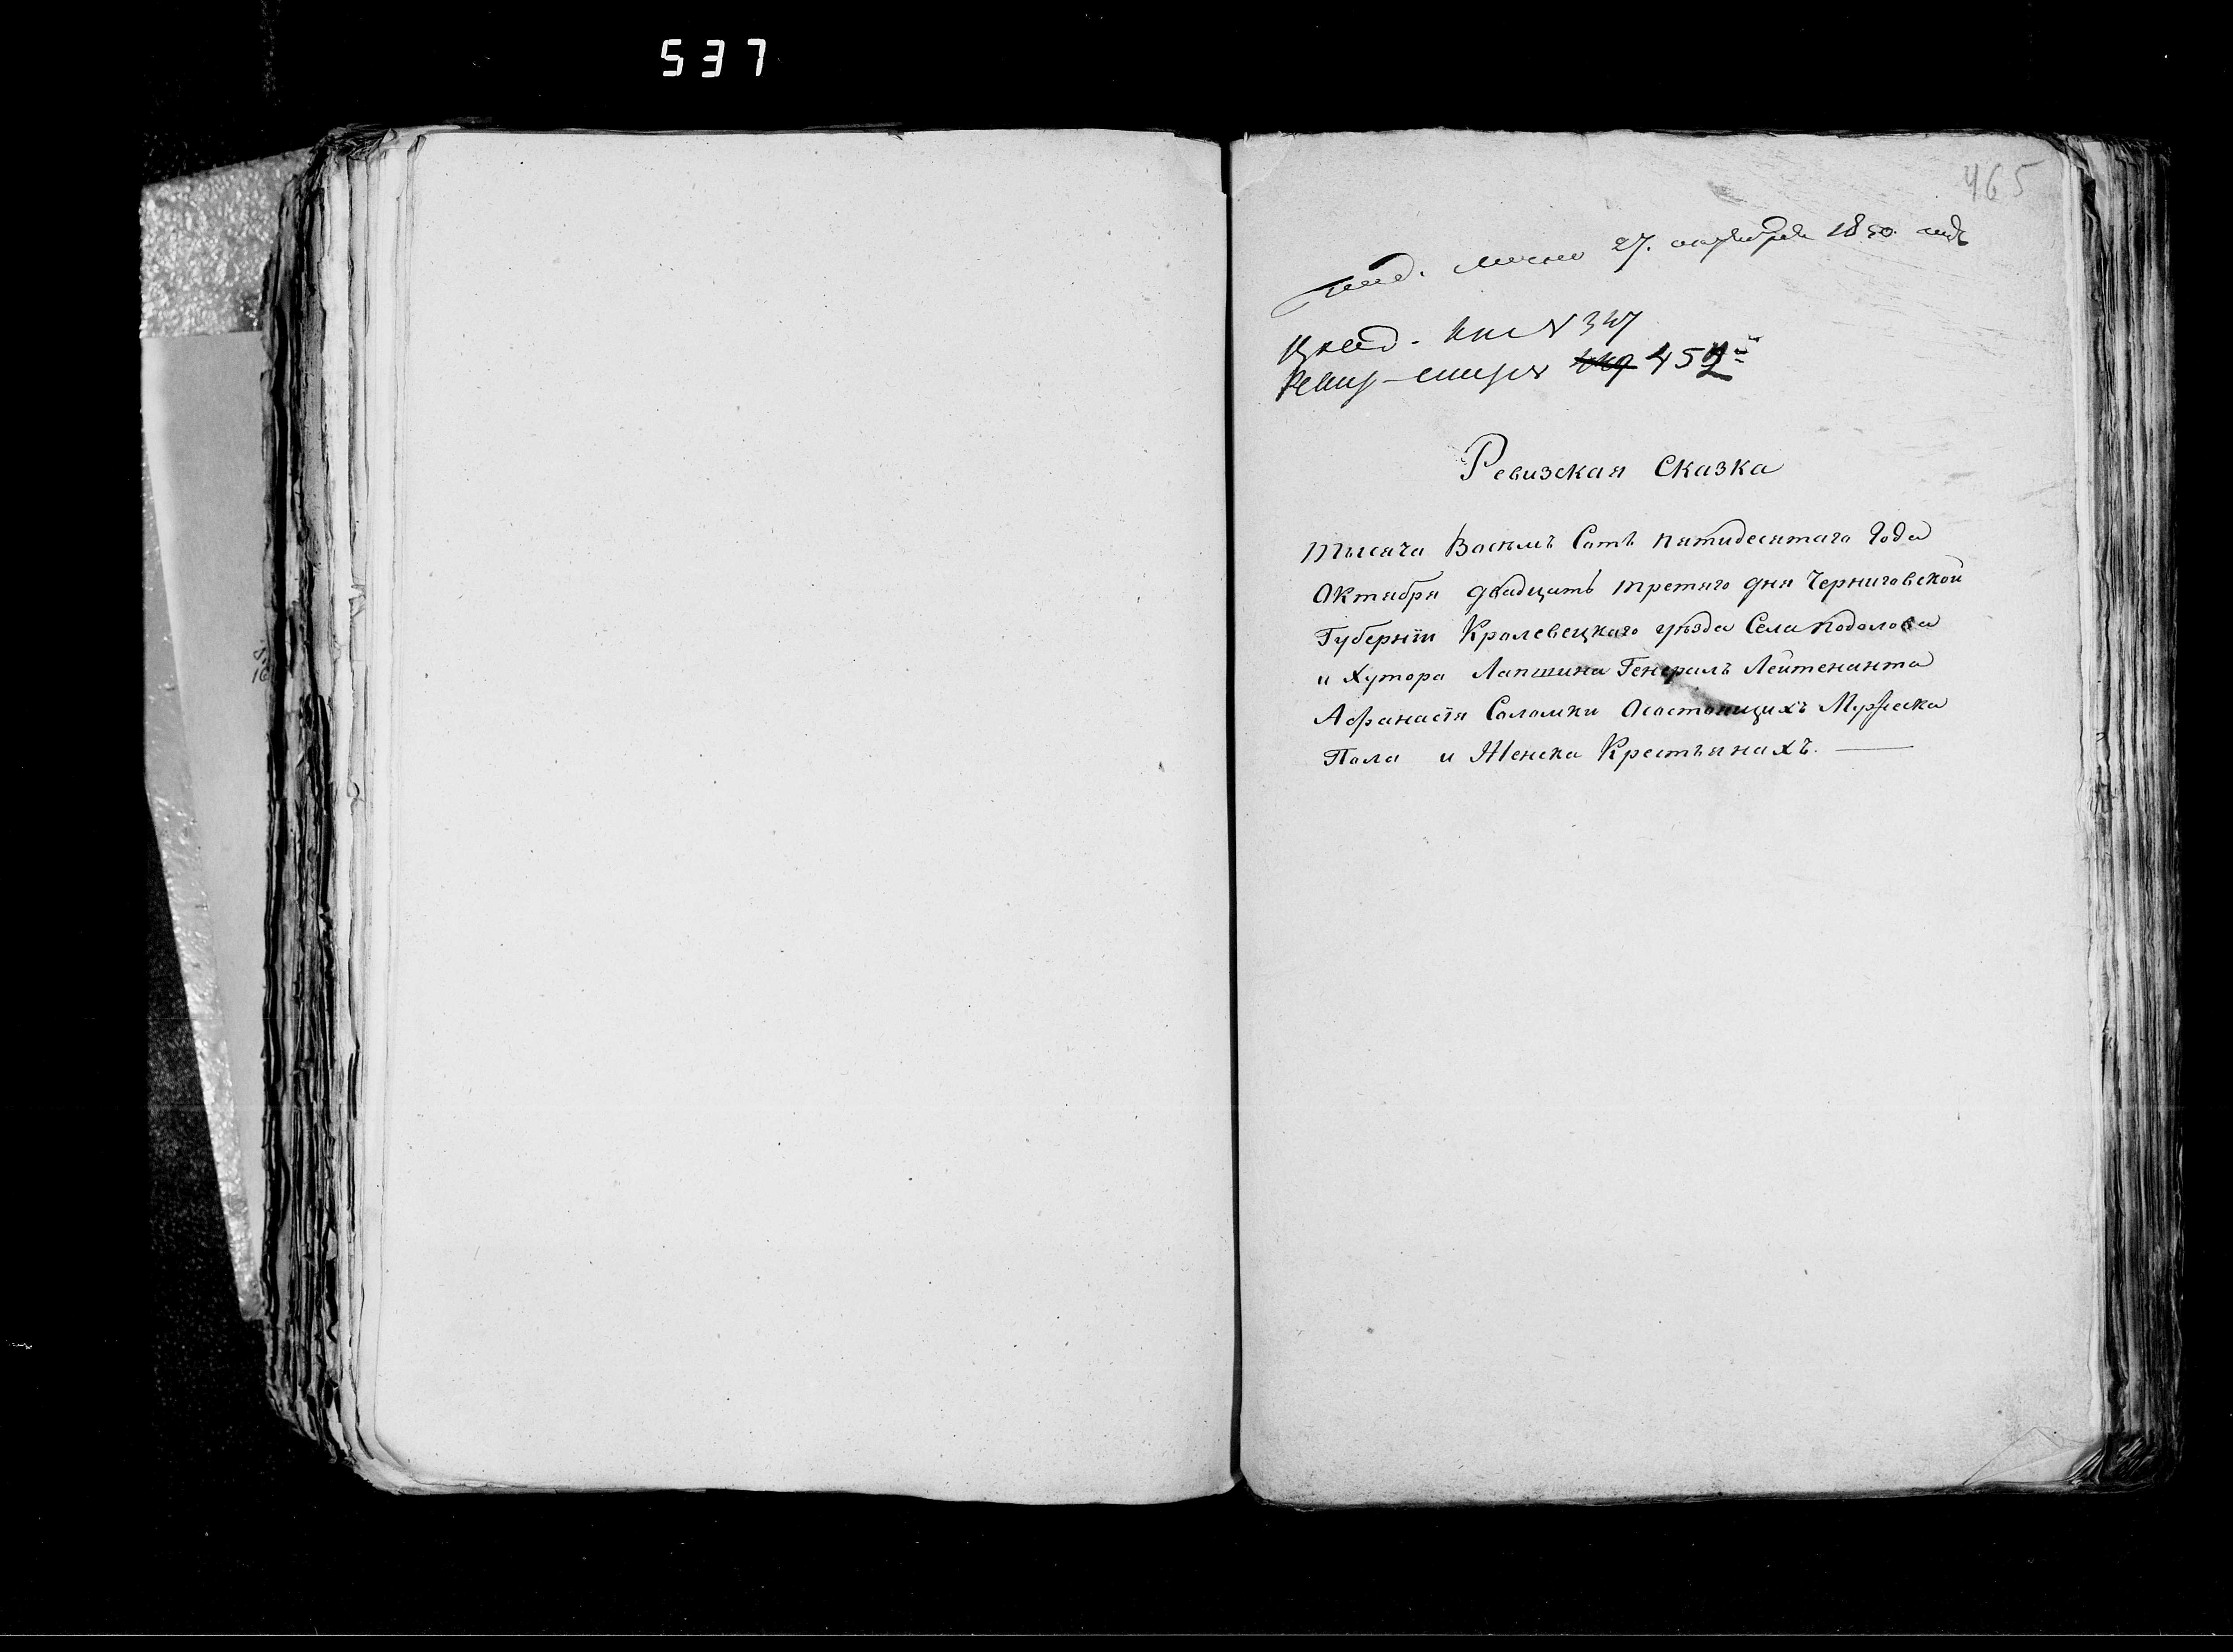 537
465
Под. лично 27. октября 1850 года
Вход. кн N 347
Регист 452
Ревизская Сказка
тысяча Восемъ Сотъ пятидесятаго Года
Октября двадцать третяго дня Черниговской
Губерніи Кролевецкаго уѣзда Села Подолова
и Хутора Лапшина Генералъ Лейтенанта
Афанасія Соломки О состоящихъ Мужеска
Пола и Женска Крестьянахъ.